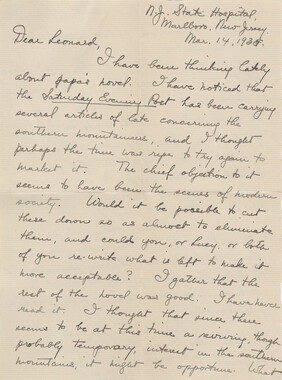 N.J. State Hospital,
Marlboro, New Jersey
Mar. 14, 193
Dear Leonard,
I have been thinking lately
about papa's novel. I have noticed that
the Saturday Evening Post has been carrying
several articles of late concerning the
southern mountaineers, and I thought
perhaps the time was ripe to try again to
market it. The chief objection to it
seems to have been the scenes of modern
society. Would it be possible to cut
these down so as almost to eliminate
them, and could you, or Lucy, or both
of you re-write what is left to make it
more acceptable? I gather that the
rest of the novel was good. I have never
read it. I thought that since there
seems to be at this time a reviving, though
probably temporary, interest in the southern
mountains, it might be opportune. What